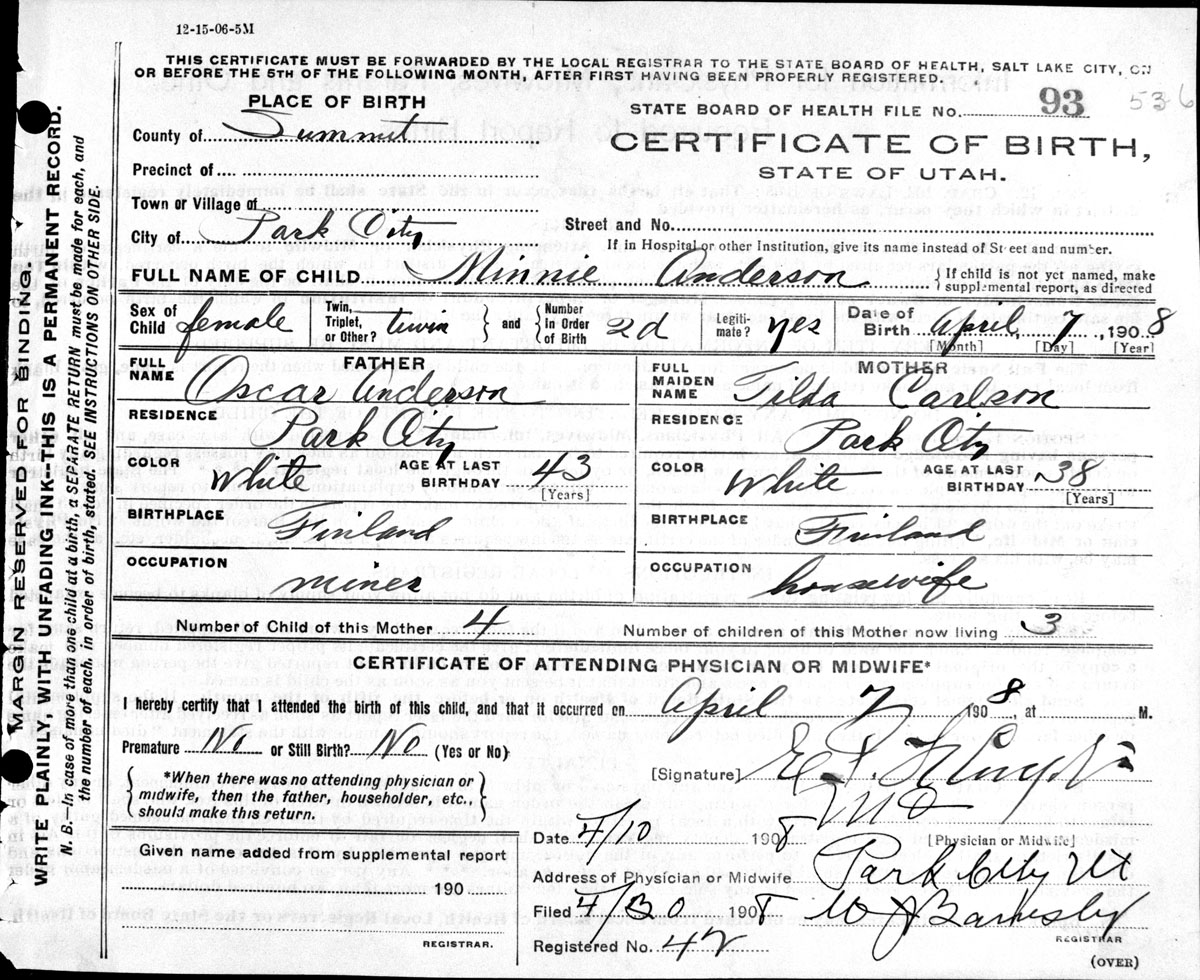 12-15-06-5M
THIS CERTIFICATE MUST BE FORWARDED BY THE LOCAL REGISTRAR TO THE STATE BOARD OF HEALTH, SALT LAKE CITY, ON
OR BEFORE THE 5TH OF THE FOLLOWING MONTH, AFTER FIRST HAVING BEEN PROPERLY REGISTERED.
PLACE OF BIRTH
STATE BOARD OF HEALTH FILE No. 93 536
County of Summit
CERTIFICATE OF BIRTH,
STATE OF UTAH.
Precinct of
Town or Village of
City of Park City
Street and No.
If in Hospital or other Institution, give its name instead of Street and number.
FULL NAME OF CHILD Minnie Anderson { If child is not yet named, make
supplemental report, as directed
Sex of Child female Twin, Triplet, or Other? twin } and { Number in Order of Birth 2d Legitimate? yes Date of Birth April, 7, 1908
[Month] [Day] [Year]
FATHER
FULL NAME Oscar Anderson
RESIDENCE
Park City
COLOR White AGE AT LAST BIRTHDAY 43
[Years]
BIRTHPLACE
Finland
OCCUPATION
miner
MOTHER
FULL MAIDEN NAME Tilda Carlson
RESIDENCE
Park City
COLOR White AGE AT LAST BIRTHDAY 38
[Years]
BIRTHPLACE
Finland
OCCUPATION
housewife
Number of Child of this Mother 4 Number of children of this Mother now living 3
CERTIFICATE OF ATTENDING PHYSICIAN OR MIDWIFE*
I hereby certify that I attended the birth of this child, and that it occurred on April 7 1908, at M.
Premature No or Still Birth? No (Yes or No)
{ *When there was no attending physician or
midwife, then the father, householder, etc.,
should make this return. }
[Signature] E. P.
MD
Date 4/10 1908 [Physician or Midwife]
Given name added from supplemental report
190
REGISTRAR.
Address of Physician or Midwife Park City Ut
Filed 4/30 1908 W J Barnesby
REGISTRAR
Registered No. 42
(OVER)
MARGIN RESERVED FOR BINDING.
WRITE PLAINLY, WITH UNFADING INK--THIS IS A PERMANENT RECORD.
N. B.—In case of more than one child at a birth, a SEPARATE RETURN must be made for each, and
the number of each, in order of birth, stated. SEE INSTRUCTIONS ON OTHER SIDE.